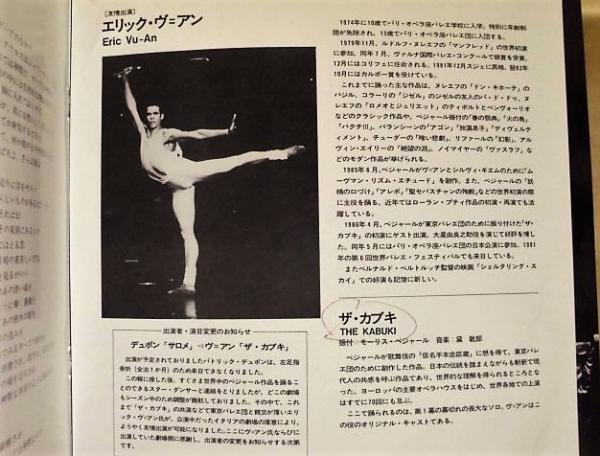 [友情出演]
エリック・ヴ=アン
Eric Vu-An
1974年に10歳でパリ・オペラ座バレエ学校に入学。特別に年齢制
限が免除され、15歳でパリ・オペラ座バレエ団に入団する。
1979年11月、ルドルフ・ヌレエフの「マンフレッド」の世界初演
に参加。同年7月、ヴァルナ国際バレエ・コンクールで銀賞を受賞。
12月にはコリフェに任命される。1981年12月スジェに昇格、翌82年
10月にはカルポー賞を受けている。
これまでに踊った主な作品は、ヌレエフの「ドン・キホーテ」の
バジル、コラーリの「ジゼル」のジゼルの友人のパ・ド・ドゥ、ヌ
レエフの「ロメオとジュリエット」のティボルトとベンヴォーリオ
などのクラシック作品や、ベジャール振付の「春の祭典」「火の鳥」
「バクチⅢ」、バランシンの「アゴン」「放蕩息子」「ディヴェルテ
ィメント」、チューダーの「暗い悲劇」、リファールの「幻影」、アル
ヴィン・エイリーの「絶望の淵」、ノイマイヤーの「ヴァスラフ」な
どのモダン作品が挙げられる。
1985年6月、ベジャールがヴ=アンとシルヴィ・ギエムのために「ム
ーヴマン・リズム・エチュード」を創作。また、ベジャールの「妖
精の口づけ」「アレポ」「聖セバスチャンの殉教」などの世界初演の際
に主役を踊る。近年ではローラン・プティ作品の初演・再演でも活
躍している。
1986年4月、ベジャールが東京バレエ団のために振り付けた「ザ・
カブキ」の初演にゲスト出演、大星由良之助役を演じて好評を博し
た。同年5月にはパリ・オペラ座バレエ団の日本公演に参加。1991
年の第6回世界バレエ・フェスティバルでも来日している。
またベルナルド・ベルトルッチ監督の映画「シェルタリング・ス
カイ」での好演も記憶に新しい。
出演者・演目変更のお知らせ
デュポン「サロメ」⇨ヴ=アン「ザ・カブキ」
出演が予定されておりましたパトリック・デュポンは、左足指
骨折(全治1か月)のため来日できなくなりました。
この報に接した後、すぐさま世界中のベジャール作品を踊るこ
とのできるスター・ダンサーと連絡をとりましたが、どこの劇場
もシーズン中のため調整が難航しておりました。その中で、これま
で「ザ・カブキ」の共演などで東京バレエ団と親交が厚いエリ
ック・ヴ=アン氏が、公演中だったイタリアの劇場の厚意により、
ようやく友情出演が可能になりました。ここにヴ=アン氏ならびに
出演していた劇場側に感謝し、出演者の変更をお知らせする次第
です。
ザ・カブキ
THE KABUKI
振付:モーリス・ベジャール 音楽:黛 敏郎
ベジャールが歌舞伎の「仮名手本忠臣蔵」に想を得て、東京バレ
エ団のために創作した作品。日本の伝統を踏まえながらも斬新で現
代人の共感を呼ぶ作品であり、世界的な理解を得られるところとな
った。ヨーロッパの主要オペラハウスをはじめ、世界各地での上演
はすでに70回にも及ぶ。
ここで踊られるのは、第1幕の幕切れの長大なソロ。ヴ=アンはこ
の役のオリジナル・キャストである。